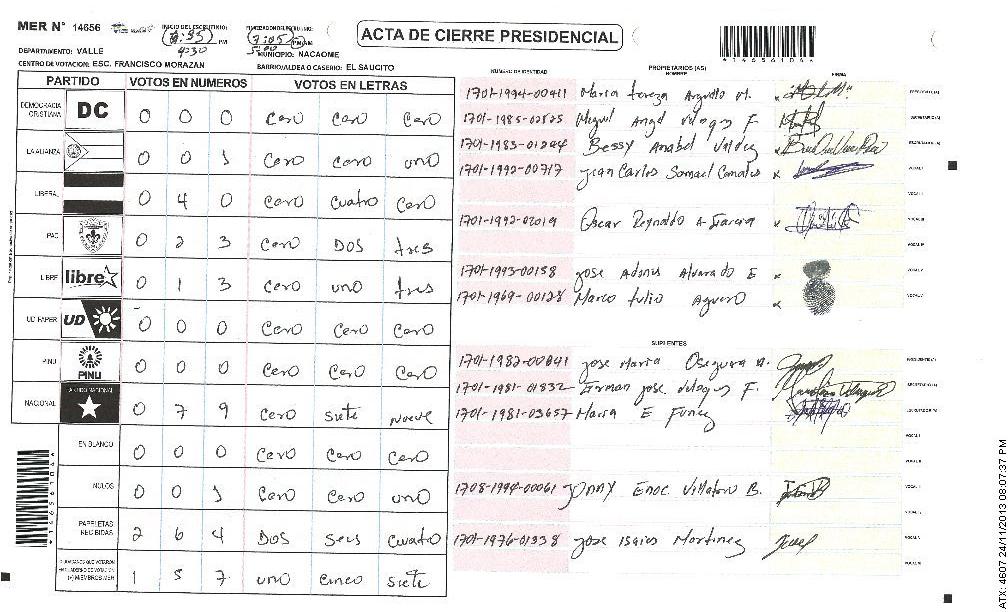 MER N° 14656
INICIO DEL ESCRUTINIO:
PM
4:30
7:05 PM
5:00
DEPARTAMENTO: VALLE
MUNICIPIO: NACAOME
CENTRO DE VOTACION: ESC. FRANCISCO MORAZAN
BARRIO/ALDEA O CASERIO: EL SAUCITO
ACTA DE CIERRE PRESIDENCIAL
*14656106*
PARTIDO VOTOS EN NUMEROS VOTOS EN LETRAS
DEMOCRACIA CRISTIANA DC 0 0 0 Cero Cero Cero
LA ALIANZA 0 0 1 Cero Cero uno
LIBERAL 0 4 0 Cero Cuatro Cero
PAC 0 2 3 Cero DOS tres
LIBRE libre 0 1 3 Cero uno tres
UD FAPER UD 0 0 0 Cero Cero Cero
PINU PINU 0 0 0 Cero Cero Cero
NACIONAL 0 7 9 Cero siete nueve
EN BLANCO 0 0 0 Cero Cero Cero
NULOS 0 0 1 Cero Cero uno
PAPELETAS RECIBIDAS 2 6 4 DOS seis Cuatro
(+) MIEMBROS MER 1 5 7 uno cinco siete
*14656106*
NUMERO DE IDENTIDAD PROPIETARIOS (AS) NOMBRE FIRMA
1701-1994-00411 Maria tereza Arguello M.
1701-1985-02525 Miguel Angel F
1701-1983-01294 Bessy Anabel Valdez
1701-1992-00717 Jean Carlos
1701-1992-02019 Oscar Reynaldo A Garcia
1701-1993-00158 jose Adonis Alvarado E
1701-1969-00128 Marco tulio Aguero
SUPLENTES
1701-1982-00841 jose Maria Oseguera A.
1701-1981-01832 Erman jose F.
1701-1981-03657 Maria E Funez
1708-1994-00061 jonny Enoc Villatoro B.
1701-1976-01338 Jose Isaias Martinez
ATX: 4607 24/11/2013 08:07:37 PM